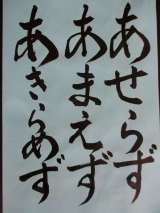 あせらず
あまえず
あきらめず